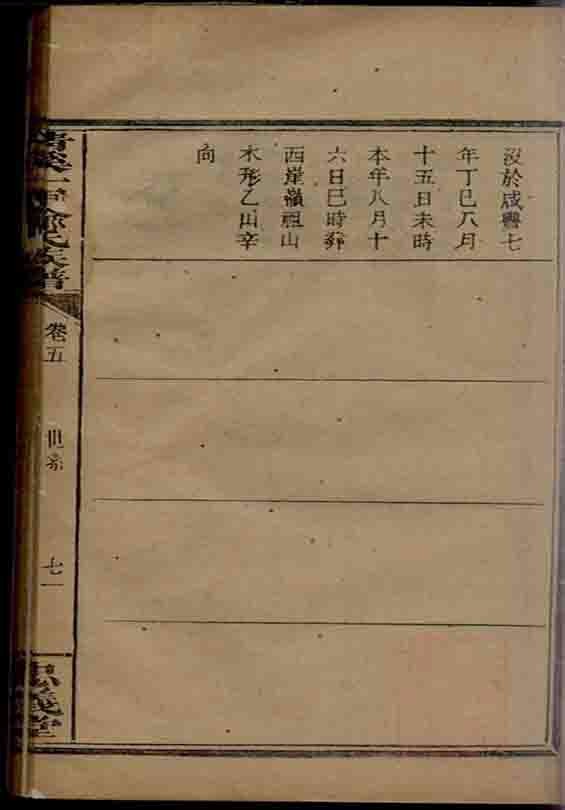 沒於咸豐七
年丁巳八月
十五日未時
本年八月十
六日巳時葬
西崖嶺祖山
木形乙山辛
向
族譜
卷五
世系
七一
忠義堂